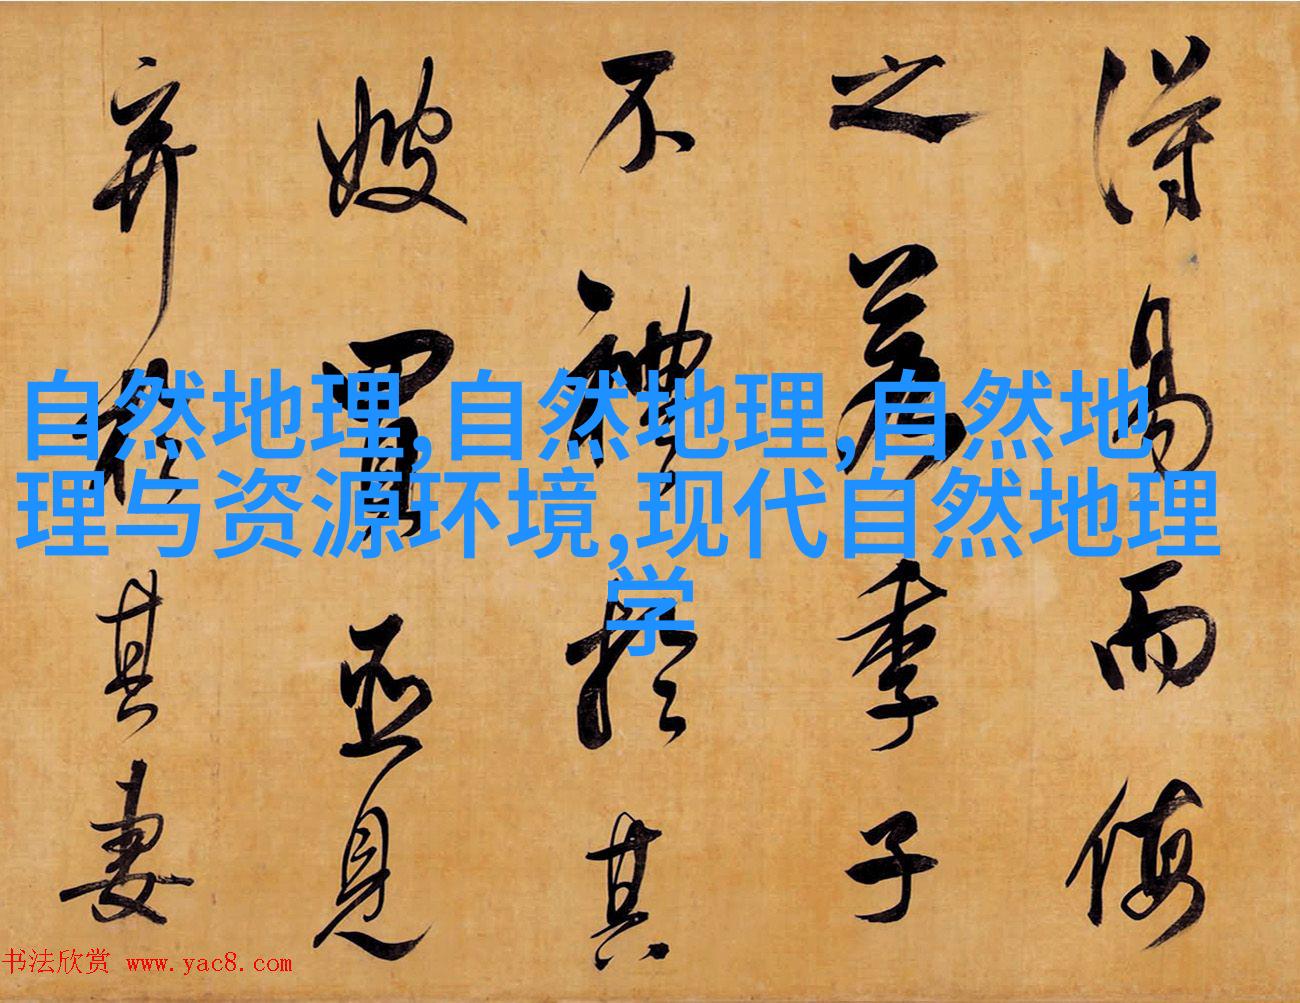 得易而侮
之若季子
不禮於其
嫂買臣見
弃於其妻
自然地理,自然地理,自然地
理与资源环境,现代自然地理
学
书法欣赏 www.yac8.com